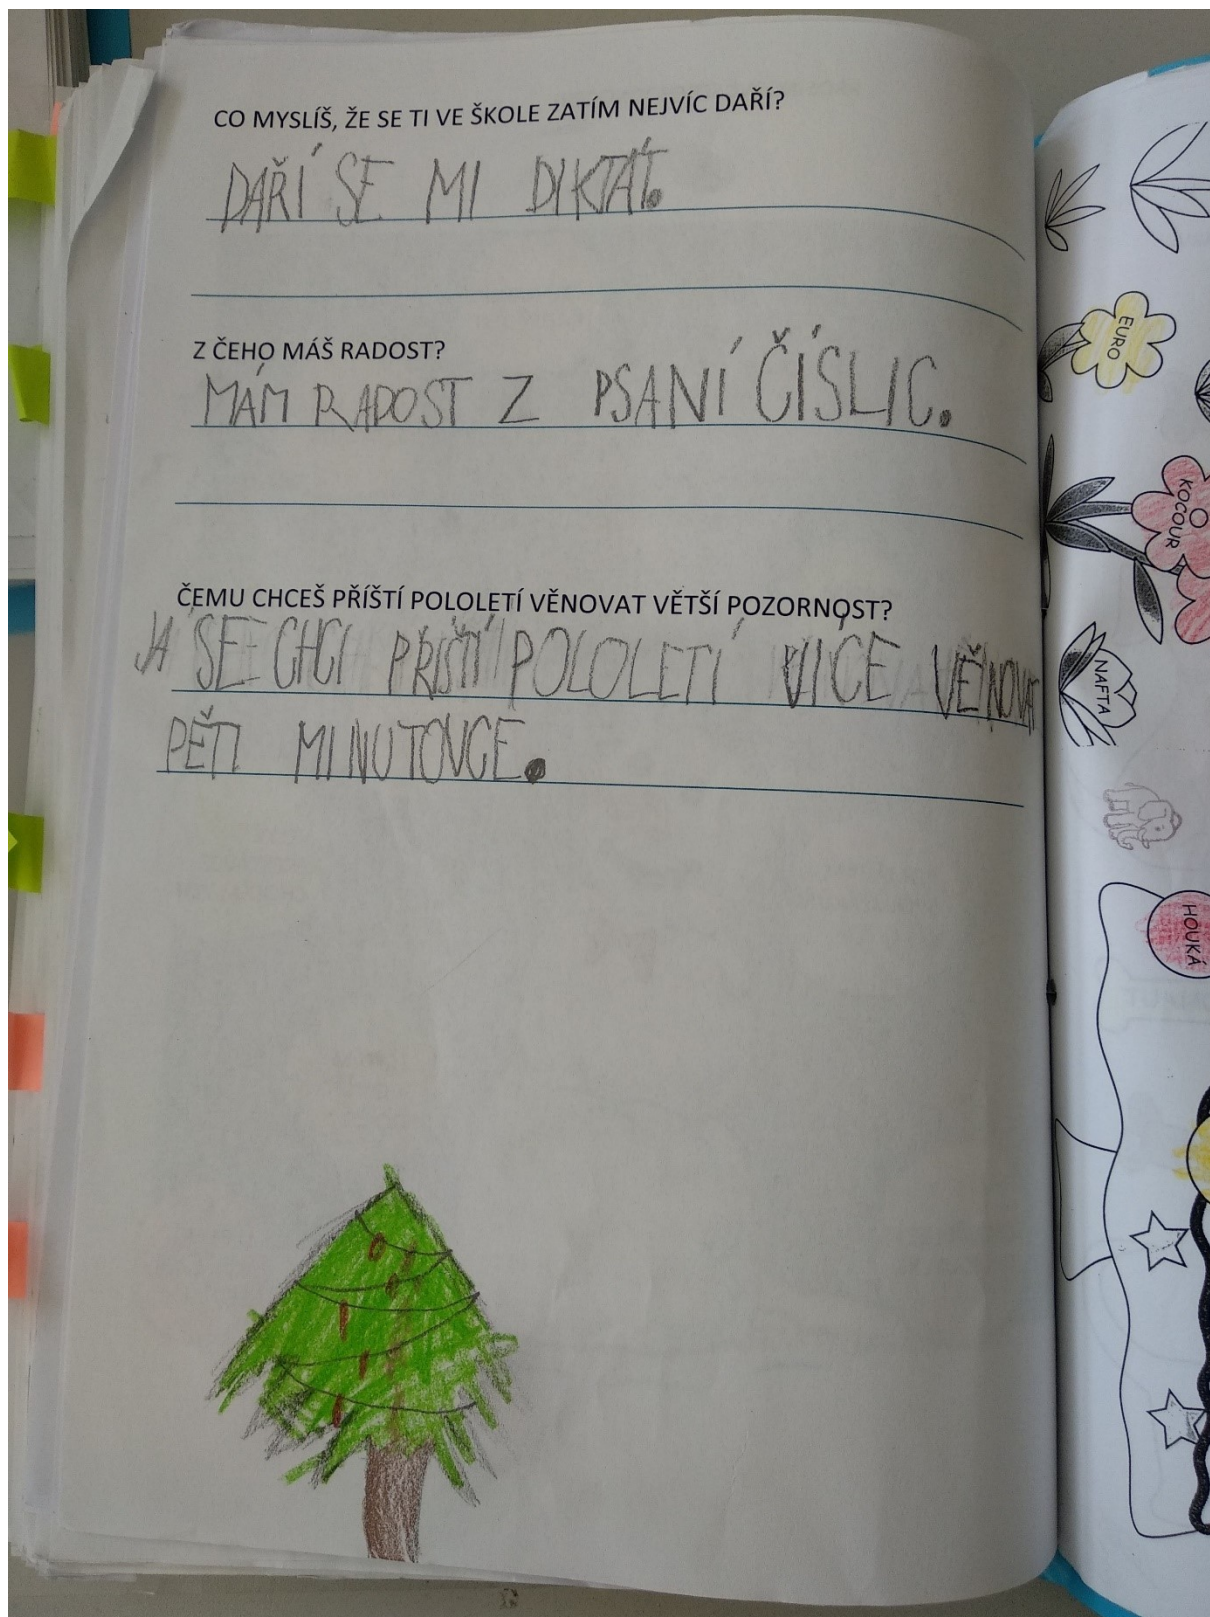 CO MYSLÍŠ, ŽE SE TI VE ŠKOLE ZATÍM NEJVÍC DAŘÍ?
DAŘÍ SE MI DIKTÁT.
Z ČEHO MÁŠ RADOST?
MÁM RADOST Z PSANÍ ČÍSLIC.
ČEMU CHCEŠ PŘÍŠTÍ POLOLETÍ VĚNOVAT VĚTŠÍ POZORNOST?
JÁ SE CHCI PŘÍŠTÍ POLOLETÍ VÍCE VĚNOVAT
PĚTI MINUTOVCE.
EURO
KOCOUR
NAFTA
HOUKÁ